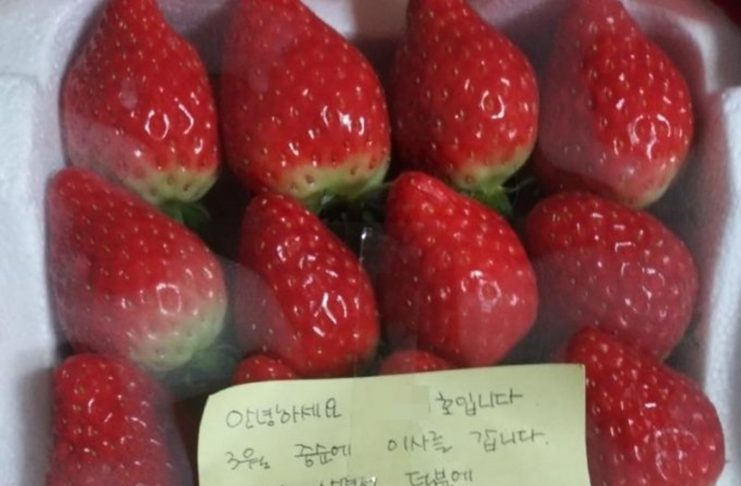 안녕하세요 호입니다
3월 중순에 이사를 갑니다.
덕분에